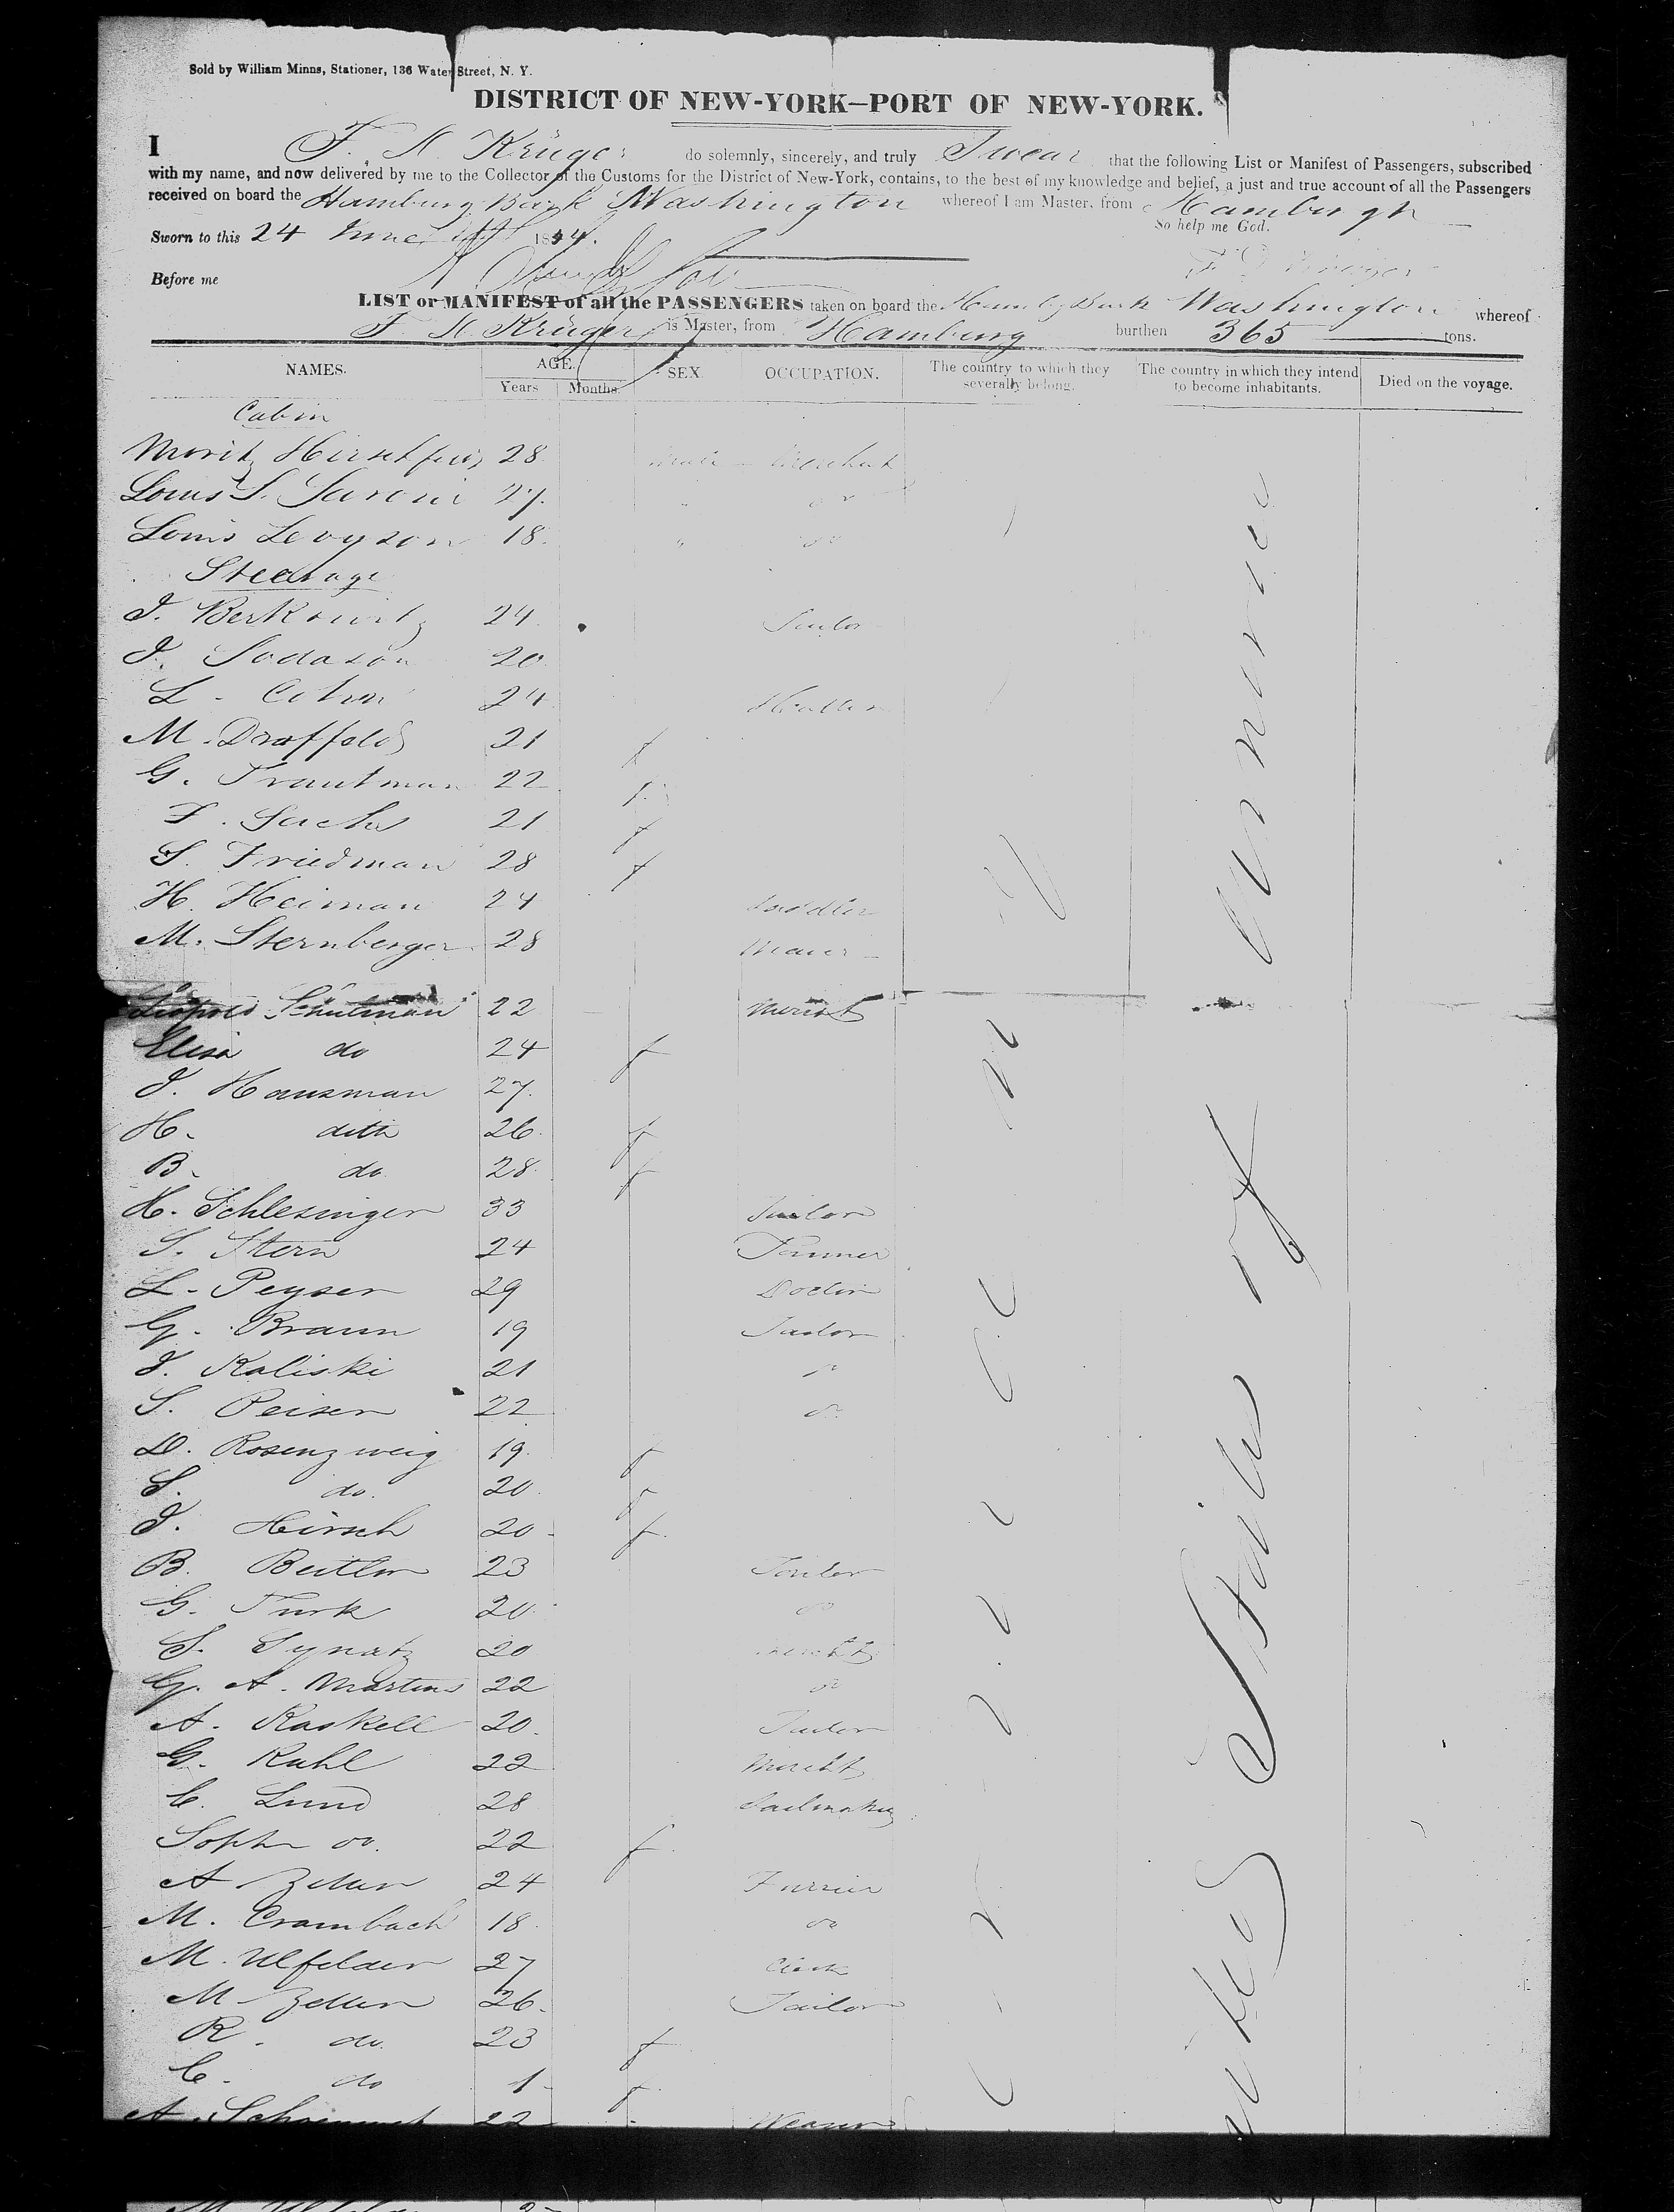 Sold by William Minns, Stationer, 136 Water Street, N. Y.
DISTRICT OF NEW-YORK—PORT OF NEW-YORK.
I F. N. Krüger do solemnly, sincerely, and truly Swear that the following List or Manifest of Passengers, subscribed
with my name, and now delivered by me to the Collector of the Customs for the District of New-York, contains, to the best of my knowledge and belief, a just and true account of all the Passengers
received on board the Hamburg Bark Washington whereof I am Master, from Hamburgh
So help me God.
Sworn to this 24 June 1844.
Before me
LIST or MANIFEST of all the PASSENGERS taken on board the Hambg Bark Washington whereof
F N Krüger is Master, from Hamburg burthen 365 tons.
NAMES. AGE. Years Months. SEX. OCCUPATION. The country to which they severally belong. The country in which they intend to become inhabitants. Died on the voyage.
Cabin
Moritz 28 male Merchant
Louis S. Saroni 27. " do
Louis Levyson 18. " do
Steerage
J. Berkowitz 24 Tailor
J. 20
L. Cohn 24
M. Draffeld 21 f
G. Trautman 22 f
F. Sachs 21 f
S. Friedman 28 f
H. Heiman 24 Saddler
M. Sternberger 28
Leopold Schulman 22
Elisa do 24 f
J. Hausman 27.
H. ditto 26 f
B. do 28 f
H. Schlesinger 33 Tailor
S. Stern 24 Tanner
L. Peyser 29 Doctor
G. Braun 19 Tailor
J. Kaliski 21 do
S. Peiser 22 do
D. Rosenzweig 19. f
S. do. 20 f
J. Hirsch 20 f
B. Butler 23 Tailor
G. Turk 20 do
S. 20 Mercht
G. A. Martens 22 do
A. Kaskell 20. Tailor
G. Kuhl 22 Mercht
C. Lund 28 Sailmaker
Soph do. 22 f
A. 24 Furrier
M. Crambach 18. do
M. Ulfelder 27 Clerk
M. 26 Tailor
R. do. 23 f
C. do 1 f
A. 22 Weaver
United States of America